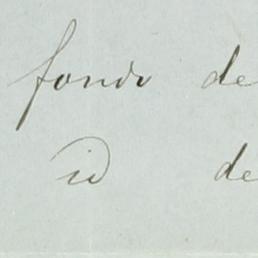 fonds de
id de